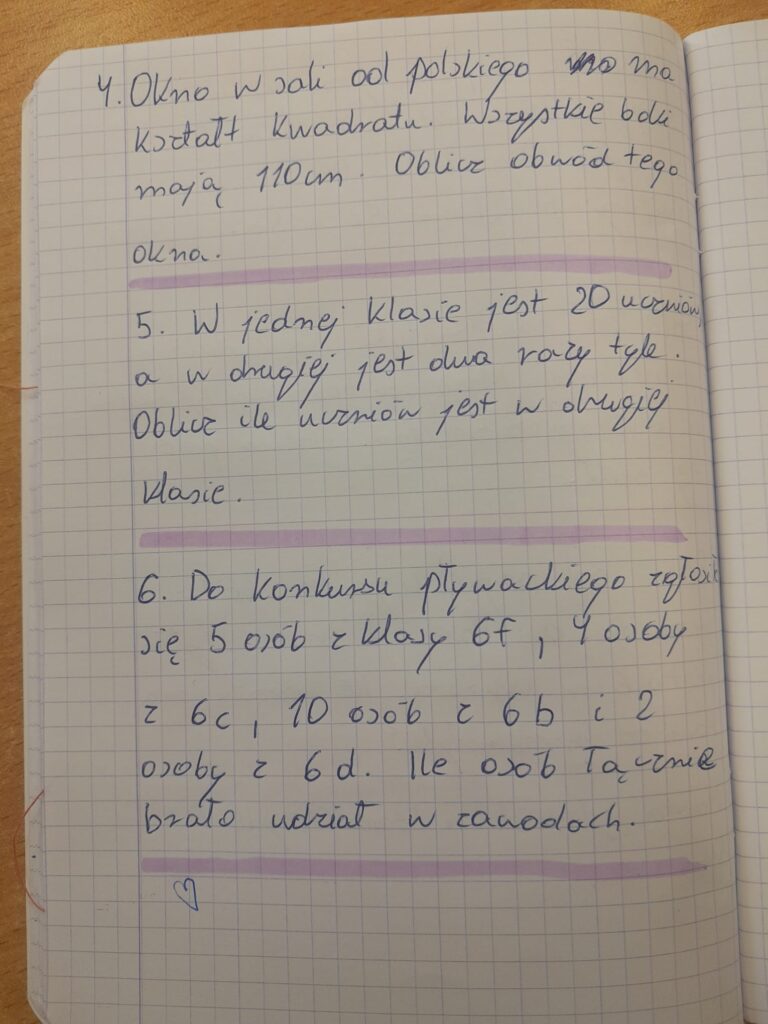 4. Okno w sali od polskiego ma
kształt kwadratu. Wszystkie boki
mają 110cm. Oblicz obwód tego
okna.
5. W jednej klasie jest 20 uczniów,
a w drugiej jest dwa razy tyle.
Oblicz ile uczniów jest w drugiej
klasie.
6. Do konkursu pływackiego zgłosili
się 5 osób z klasy 6f, 4 osoby
z 6c, 10 osób z 6b i 2
osoby z 6d. Ile osób łącznie
brało udział w zawodach.